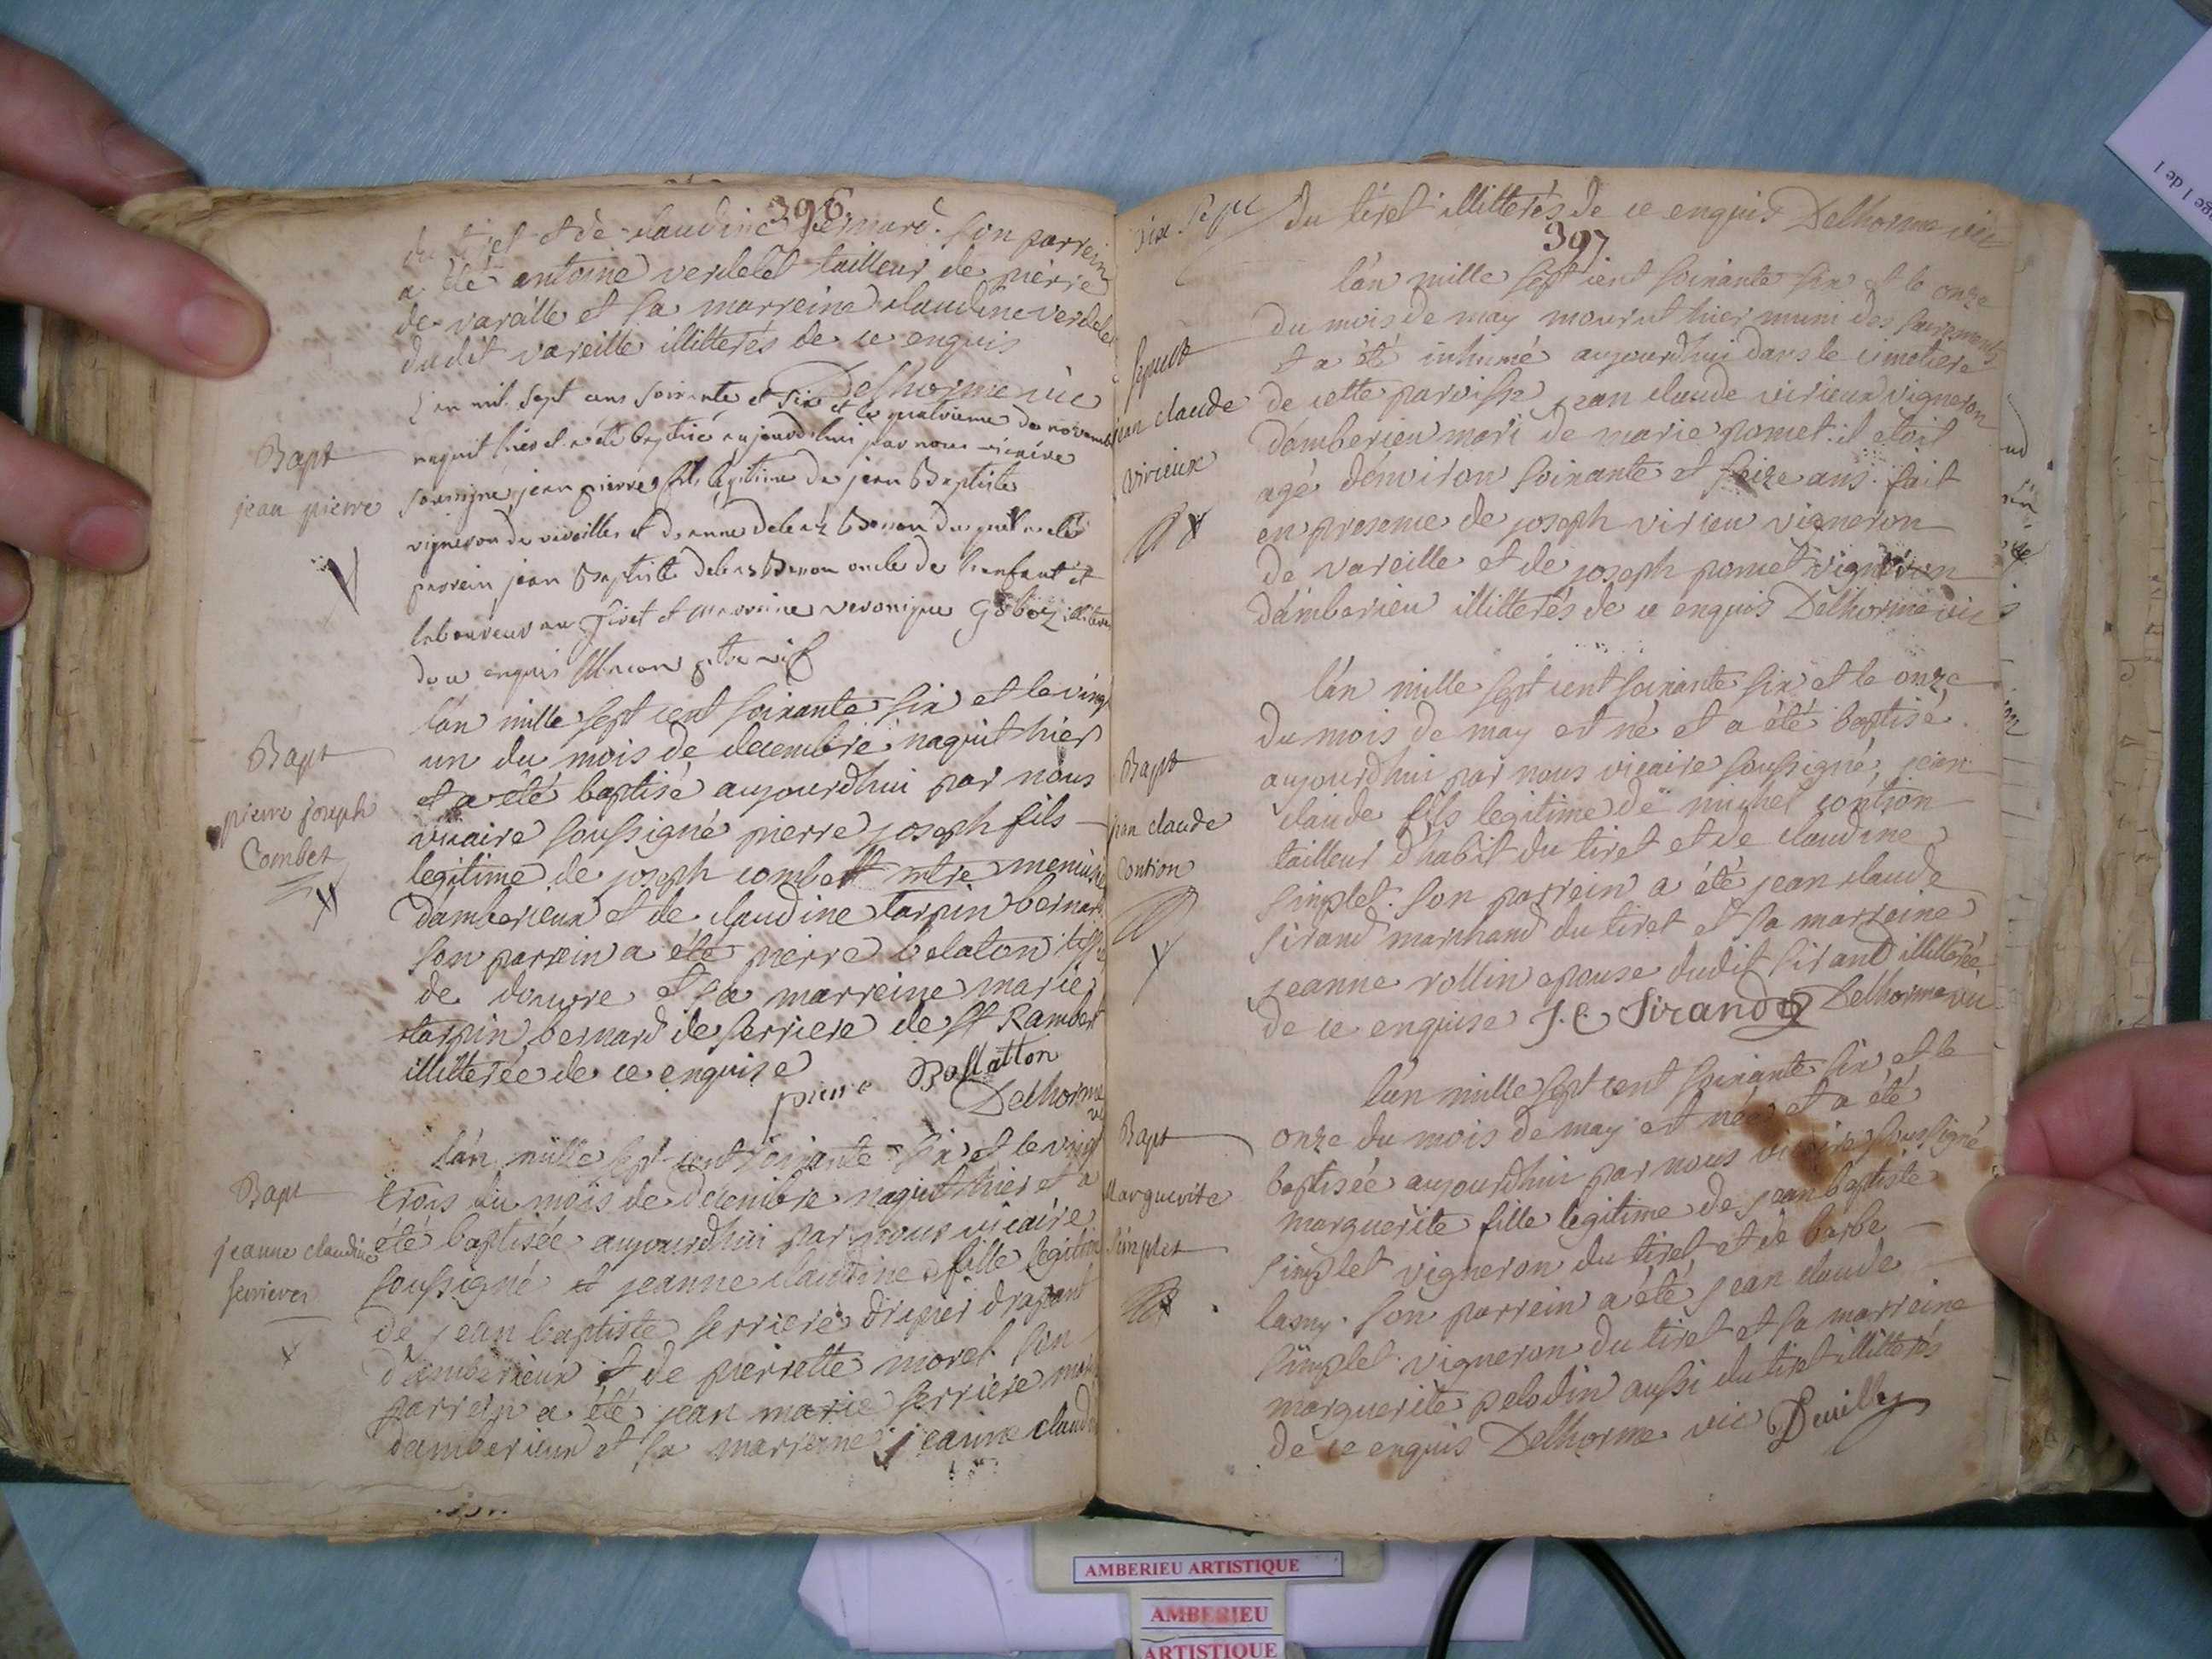 396
du tiret et de claudine bernard. son parrein
a été antoine verdelet tailleur de pierre
de vareille et sa marreine claudine verdelet
dudit vareille illitterés de ce enquis
Delhorme vic
Bapt
jean pierre
L'an mil sept cens soixante et six et le quatrieme de novembre
naquit hier et a été baptisé aujourd'hui par nous vicaire
soussigné jean pierre fils légitime de jean Baptiste
vigneron de vareilles et d'anne
parrein jean Baptiste oncle de l'enfant et
laboureur au Tiret et marreine veronique
de ce enquis
Bapt
pierre joseph
Combet
l'an mille sept cent soixante six et le vingt
un du mois de decembre naquit hier
et a été baptisé aujourdhui par nous
vicaire soussigné pierre joseph fils
legitime de joseph combet mtre menuisie
damberieux et de claudine tarpin bernard
son parrein a été pierre
de douvre et sa marreine marie
tarpin bernard de serriere de st Rambert
illitterée de ce enquise
pierre Ballatton
Delhorme
vic
Bapt
jeanne claudine
serrieres
l'an mille sept cent soixante six et le vingt
trois du mois de decembre naquit hier et a
été baptisée aujourdhui par nous vicaire
soussigné et jeanne claudine fille legitime
de jean baptiste serriere drapier drapant
d'amberieux et de pierrette morel son
parrein a été jean marie serriere
damberieux et sa marreine jeanne claudine
397
du tiret illitterés de ce enquis Delhorme vic
sepult
jean claude
virieux
l'an mille sept cent soixante six et le onze
du mois de may mourut hier muni des sacrements
et a été inhumé aujourdhui dans le cimetiere
de cette paroisse jean claude virieux vigneron
damberieu mari de marie pomet il etoit
agé denviron soixante et seize ans. fait
en presence de joseph virieu vigneron
de vareille et de joseph pomet vigneron
damberieu illitterés de ce enquis Delhorme vic
Bapt
jean claude
Contion
l'an mille sept cent soixante six et le onze
du mois de may est né et a été baptisé
aujourdhui par nous vicaire soussigné, jean
claude fils legitime de michel contion
tailleur d'habit du tiret et de claudine
simplet. son parrein a été jean claude
sirand marchand du tiret et sa marreine
jeanne rollin epouse dudit sirand illitterée
de ce enquise J. C. Sirand Delhorme vic
Bapt
Marguerite
simplet
l'an mille sept cent soixante six et le
onze du mois de may est née et a été
baptisée aujourdhui par nous vicaire soussigné
marguerite fille legitime de jean baptiste
simplet vigneron du tiret et de barbe
lamy. son parrein a été jean claude
simplet vigneron du tiret et sa marreine
marguerite pelodin aussi du tiret illitterés
de ce enquis Delhorme vic
AMBERIEU ARTISTIQUE
AMBERIEU
ARTISTIQUE